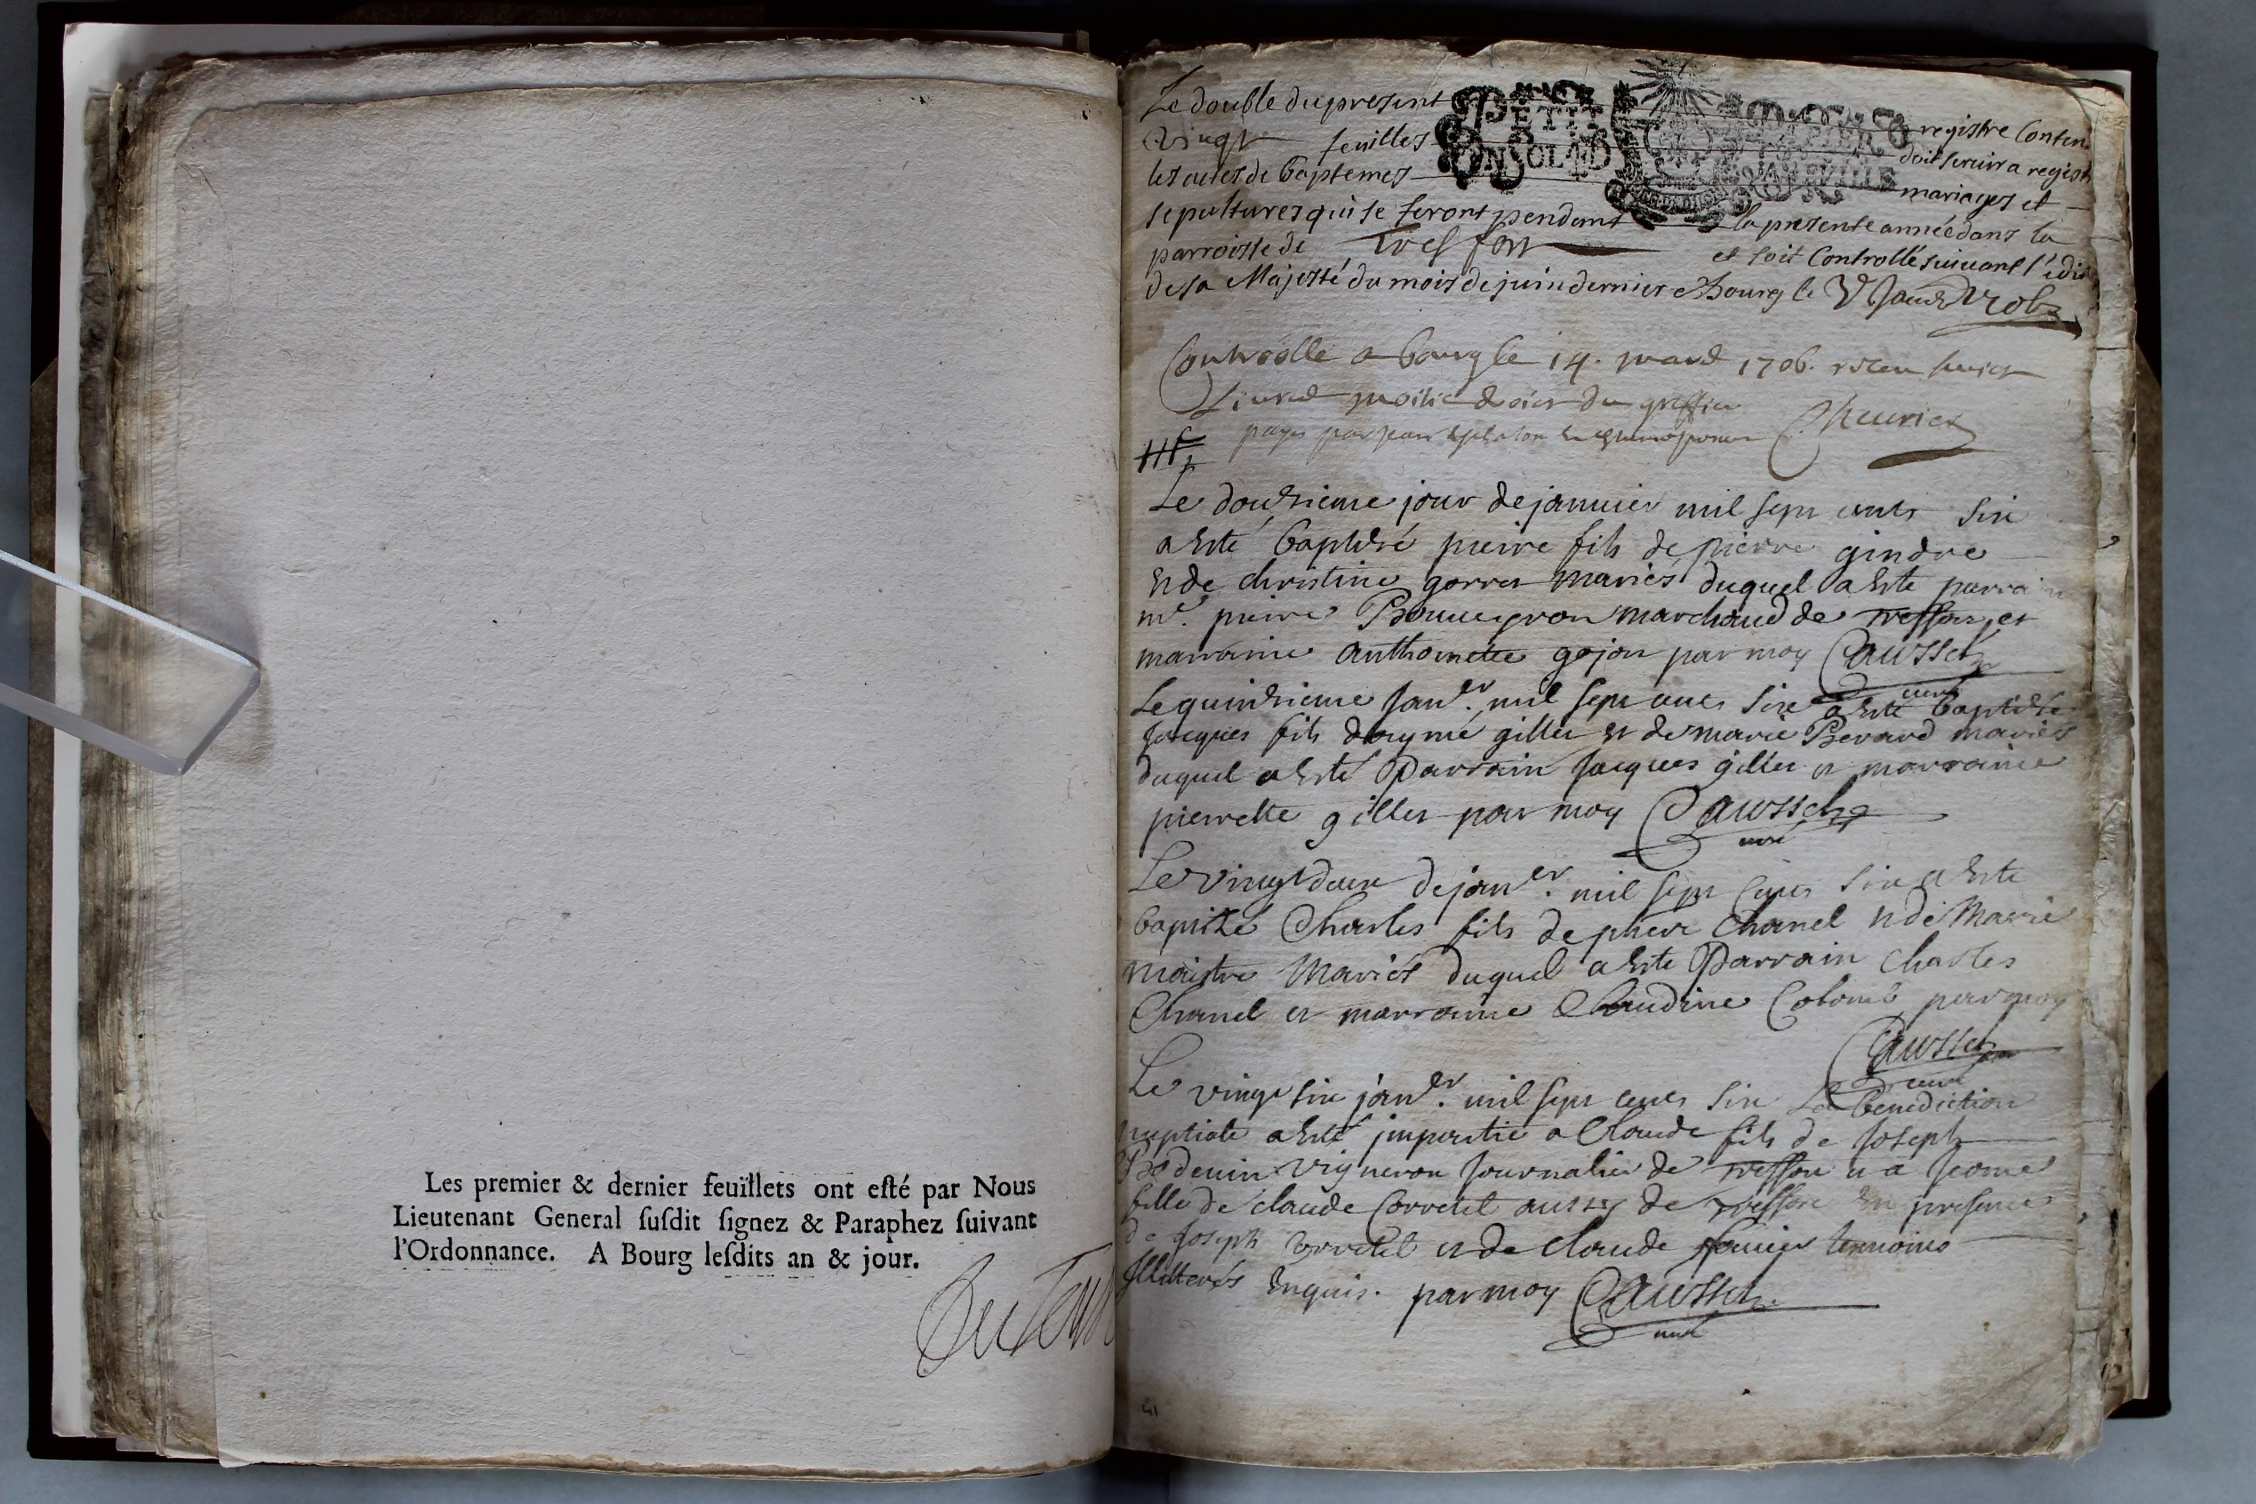 Les premier & dernier feuillets ont esté par Nous
Lieutenant General susdit signez & Paraphez suivant
l'Ordonnance. A Bourg lesdits an & jour.
Le double du present registre Conten
vingt feuilles doit servir a regist
les actes de baptemes mariages et
sepultures qui se feront pendant la presente année dans la
parroisse de Tresfort et soit Controllé suivant l'édit
de sa Majesté du mois de juin dernier a Bourg le
PETIT PAPIER
EN SOL D
Controllé a bourg le 14. 1706.
Livres moitié du greffier
Le douzieme jour de janvier mil sept cents six
a esté baptisé pierre fils de pierre gindre
et de christine gorret mariés duquel a esté parrain
mr. pierre Bouveyron marchand de tresfort et
marraine anthoinette gojon par moy Caussel
curé
Le quinzieme janver. mil sept cents six a esté baptisé
jacques fils d'aymé gilles et de marie Bevard mariés
duquel a esté Parrain jacques gilles et marraine
pierrette gilles par moy Caussel
curé
Le vingt deux de janver. mil sept cents six a esté
baptizé Charles fils de pierre Chanel et de Marie
maistre Mariés duquel a esté Parrain Charles
Chanel et marraine Claudine Colomb par moy
Caussel
curé
Le vingt six janver. mil sept cents six La benediction
nuptiale a esté impartie a Claude fils de Joseph
vigneron journalier de tresfort et a jeanne
fille de claude Corretel aussy de tresfort en presence
de joseph Corretel et de claude temoins
Illitterés Enquis. par moy Caussel
curé